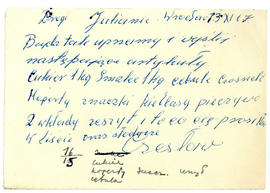 Drogi Julianie Wrocław 13 XI 67
Bądź tak uprzejmy i wyślij
następujące artykuły
Cukier 1 kg Smalec 1 kg cebule czosnek
Koperty znaczki kiełbasy pieczywo
2 wkłady zeszyt i to co cię prosiłem
w liście oraz słodycze
Czesław
16
15
cukier
koperty
cebula